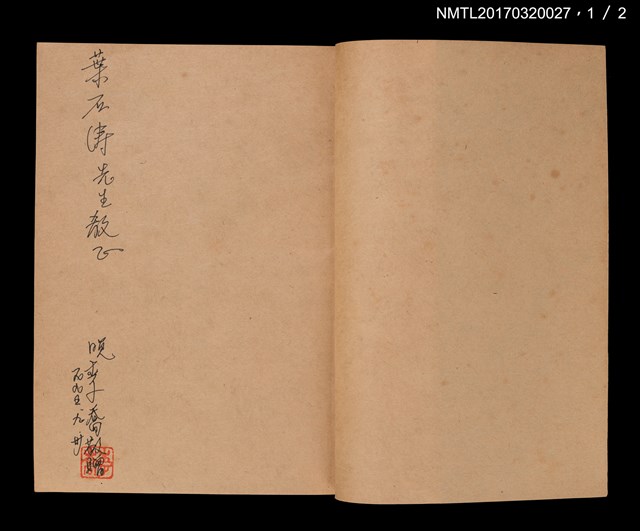 NMTL20170320027，1／2
葉石涛先生教正
晚李喬敬贈